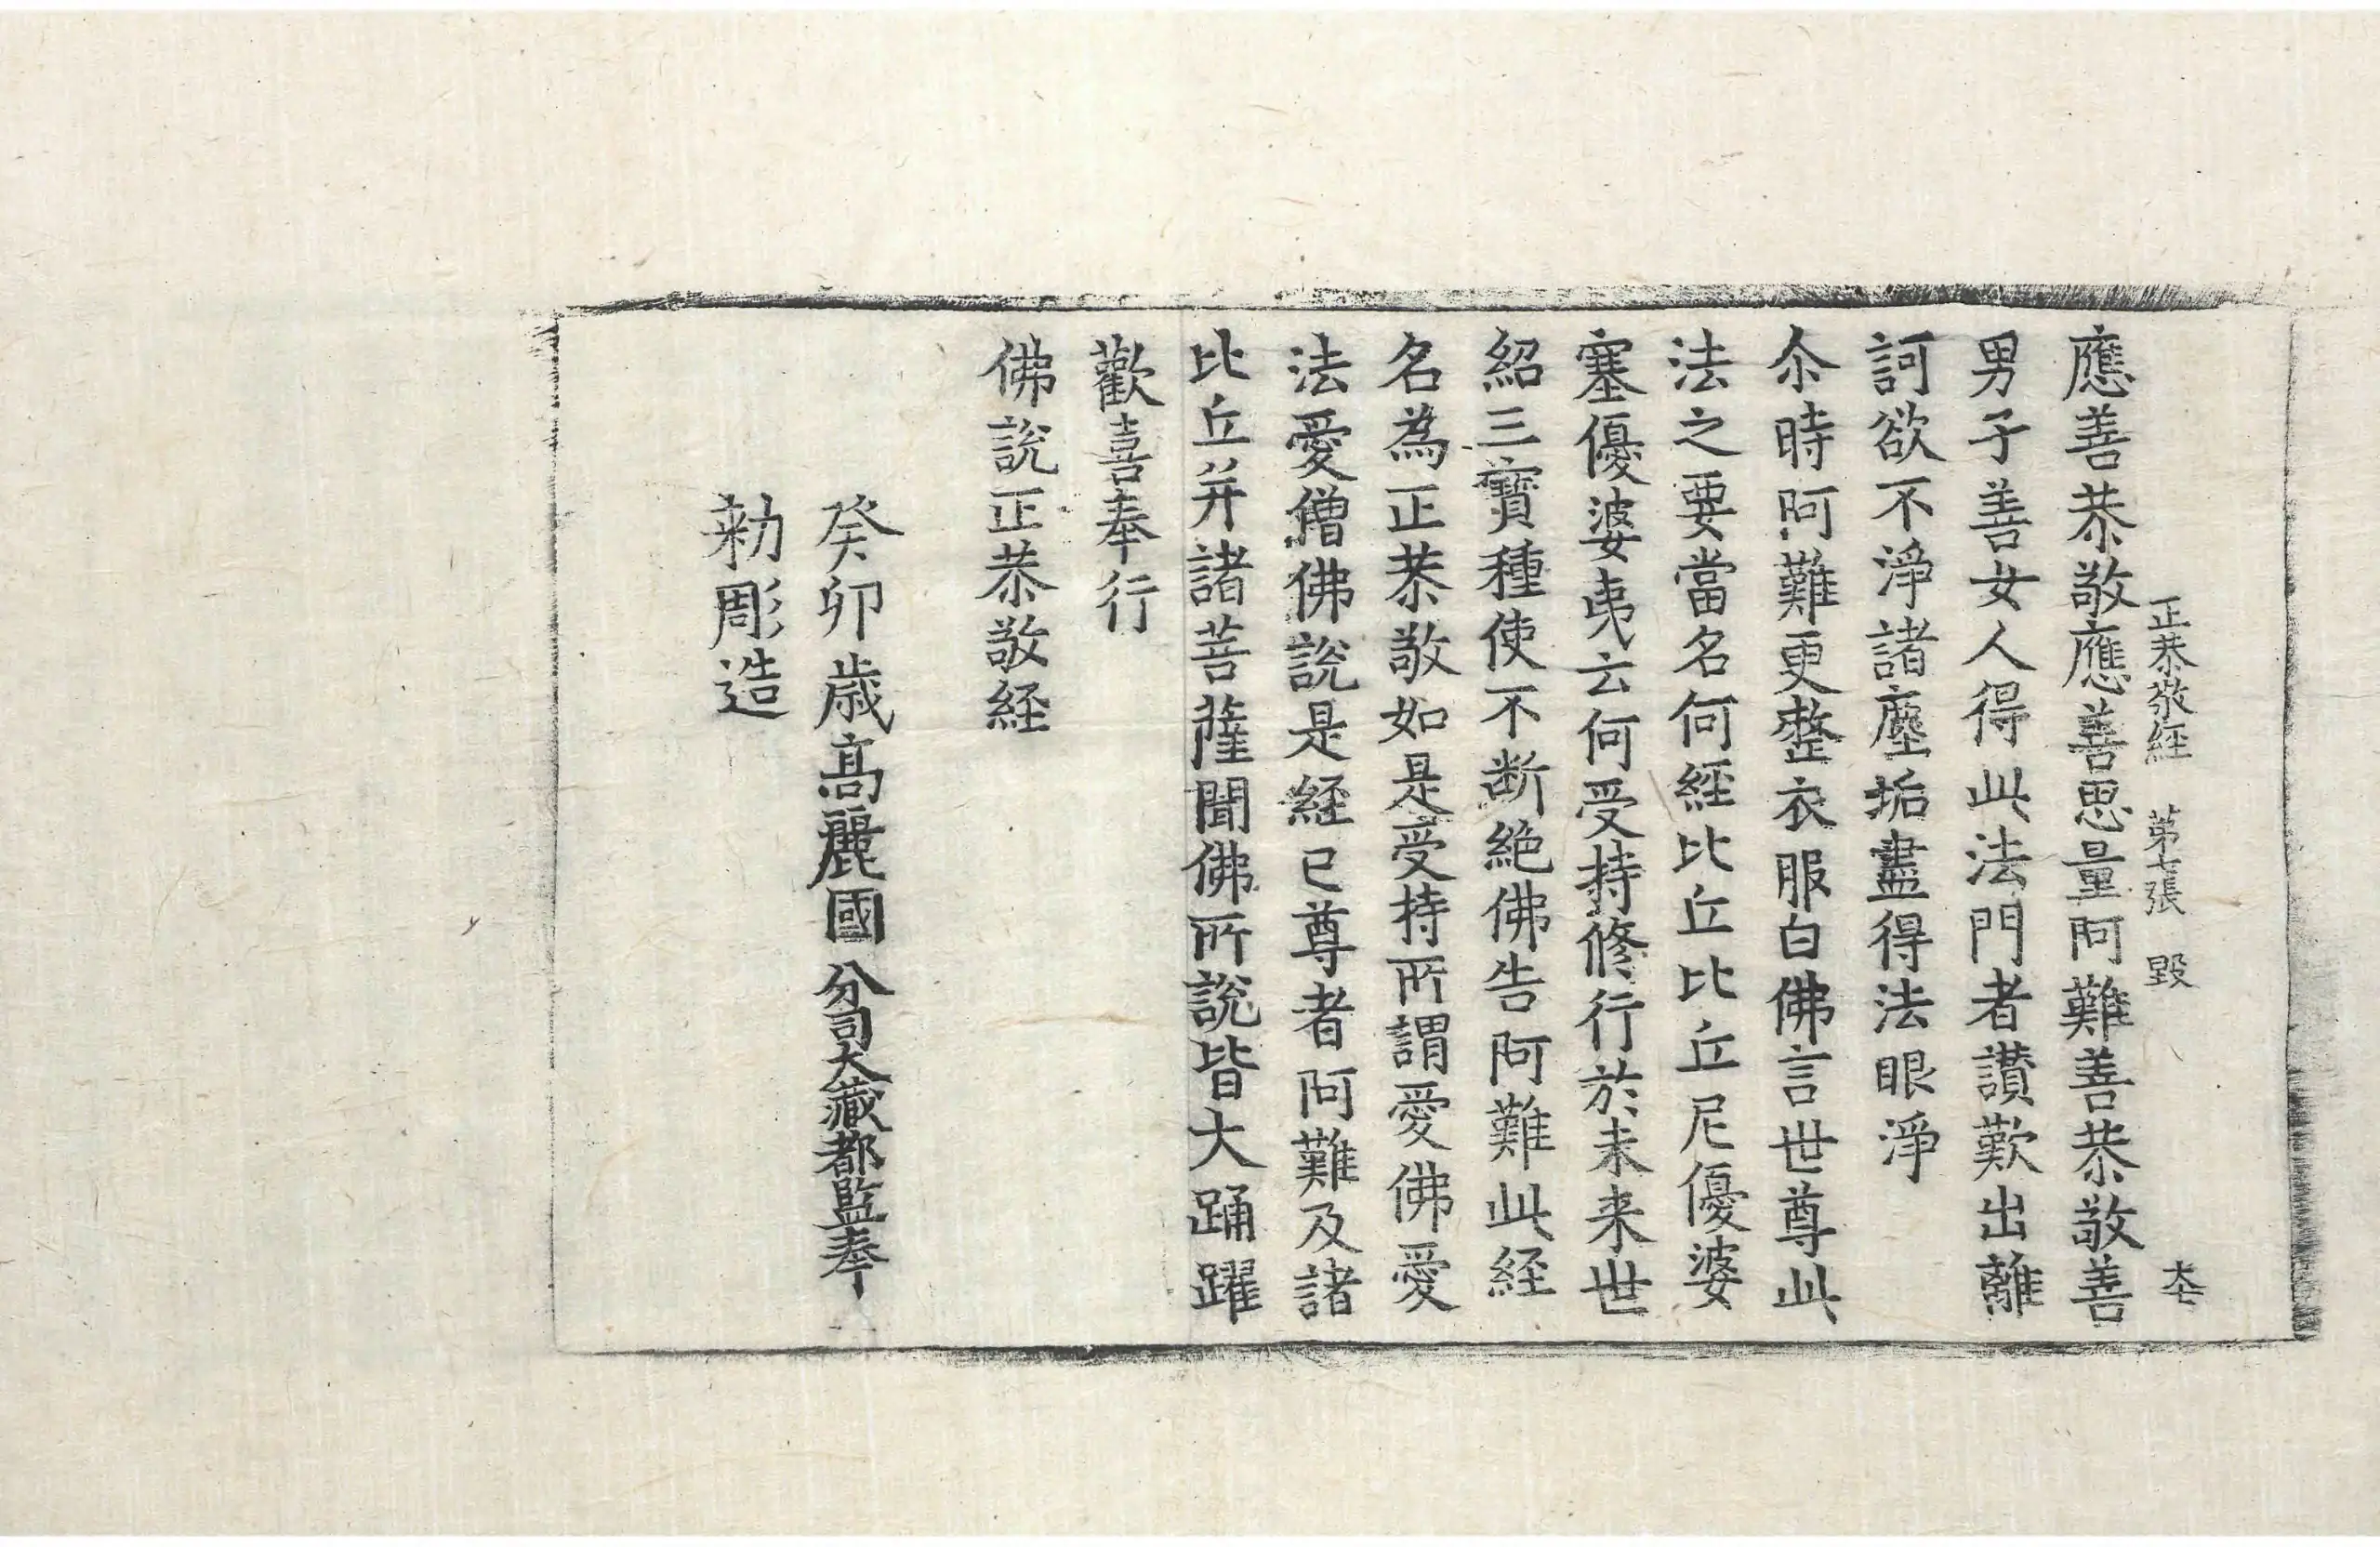 正恭敬経　第七張　毀　大七
應善恭敬應善思量阿難善恭敬善
男子善女人得此法門者讃歎出離
訶欲不淨諸塵垢盡得法眼淨
尒時阿難更整衣服白佛言世尊此
法之要當名何經比丘比丘尼優婆
塞優婆夷云何受持修行於未来世
紹三寶種使不断絶佛告阿難此経
名為正恭敬如是受持所謂愛佛愛
法愛僧佛說是経已尊者阿難及諸
比丘并諸菩薩聞佛所說皆大踊躍
歡喜奉行
佛說正恭敬経
癸卯歳高麗國分司大藏都監奉
勑彫造